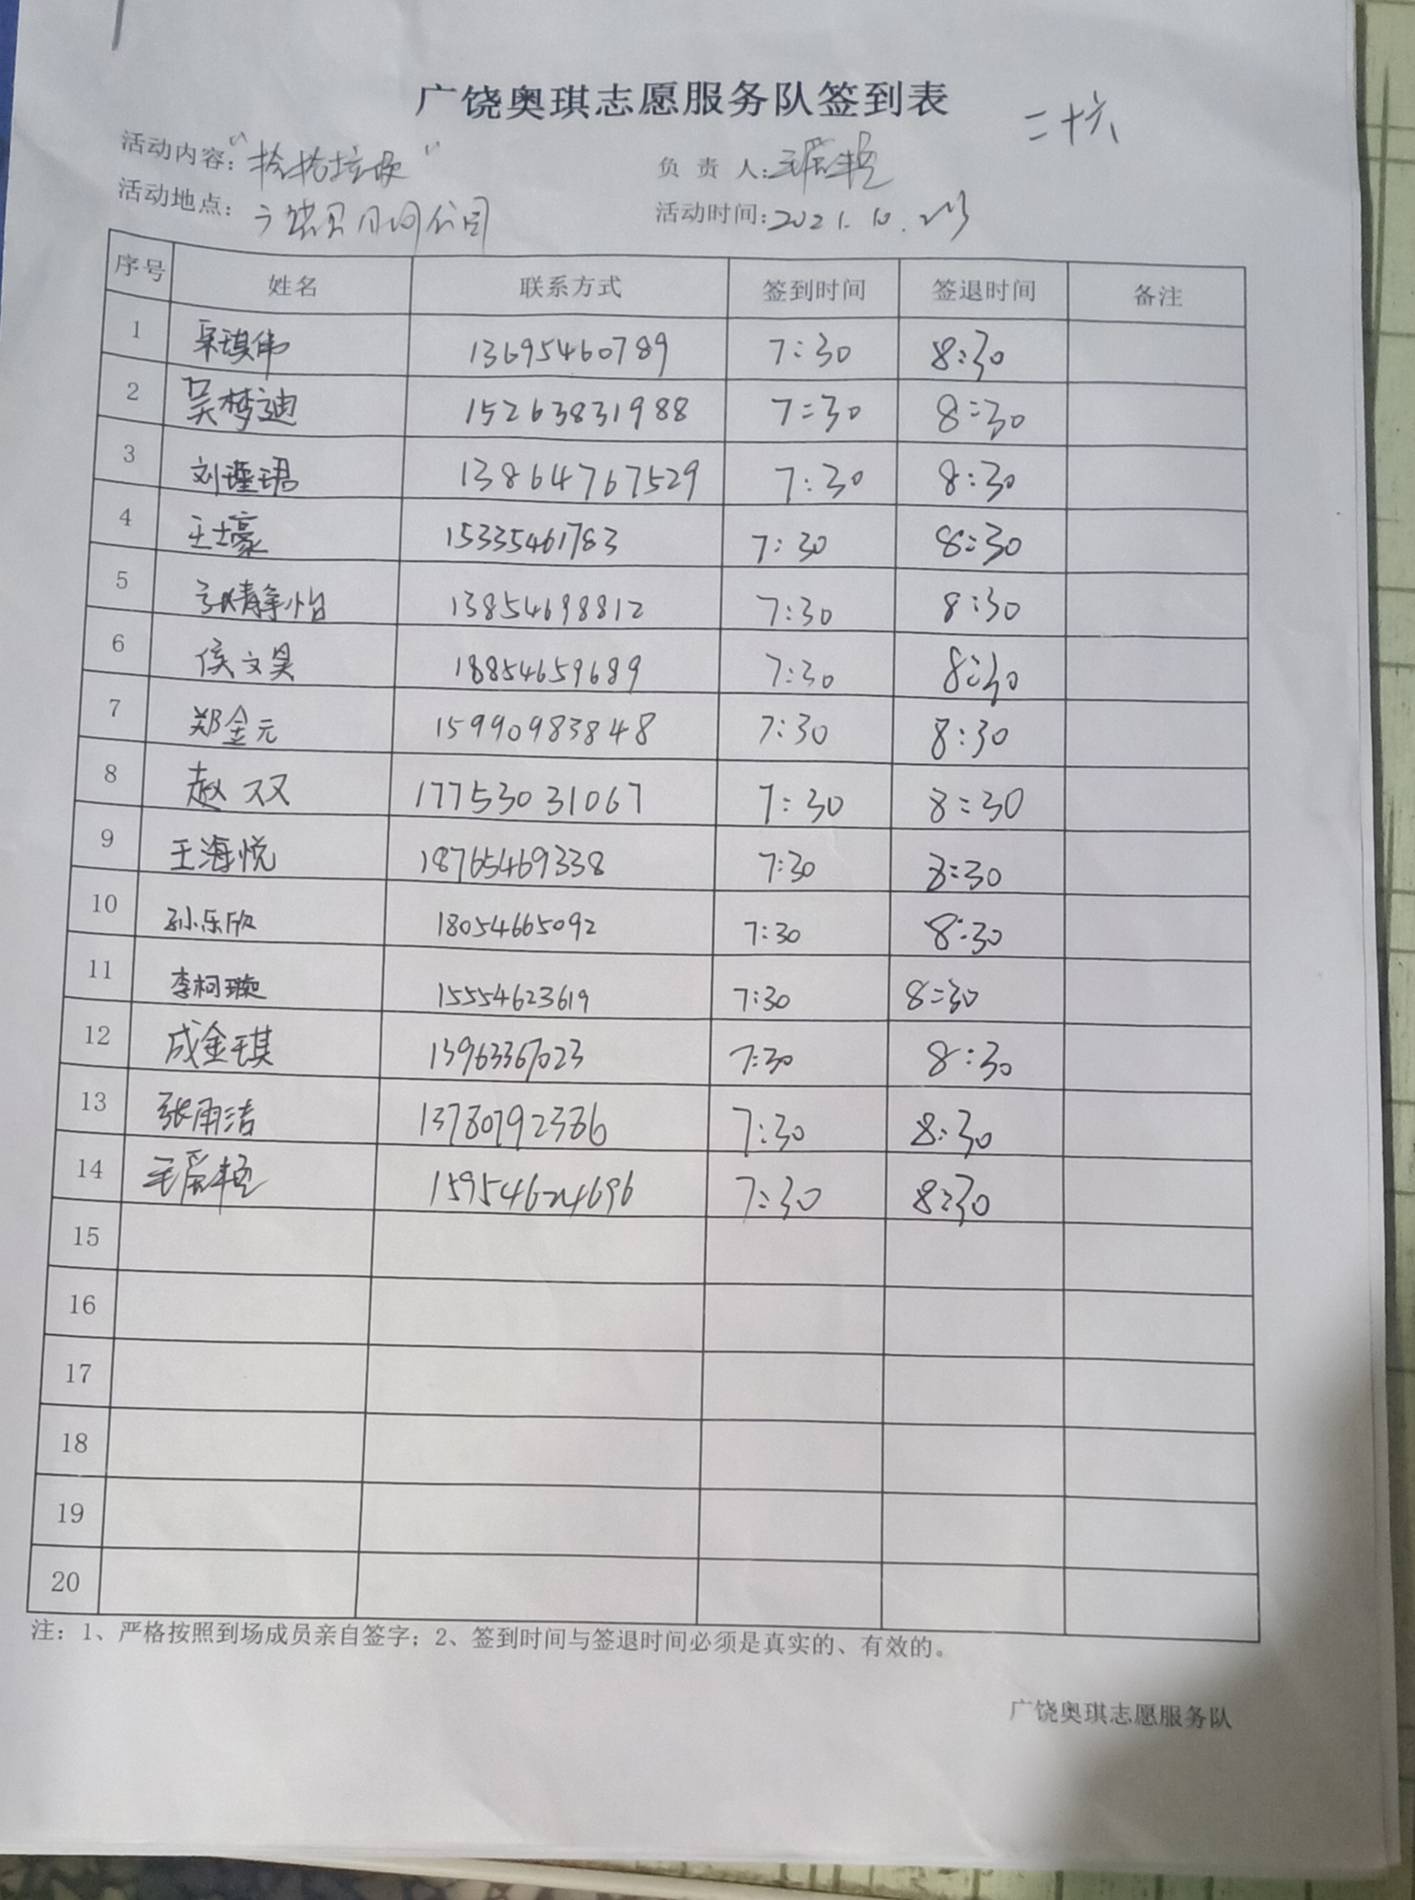 广饶奥琪志愿服务队签到表
二十六
活动内容：“捡捡垃圾” 负 责 人：
活动地点：广饶 公园 活动时间：2021.10.
序号 姓名 联系方式 签到时间 签退时间 备注
1 宋琪伟 13695460789 7:30 8:30
2 吴梦迪 15263831988 7:30 8:30
3 刘瑾珺 13864767529 7:30 8:30
4 王士豪 15335461783 7:30 8:30
5 张静怡 13854698812 7:30 8:30
6 侯文昊 18854659689 7:30 8:30
7 郑金元 15990983848 7:30 8:30
8 赵双 17753031067 7:30 8:30
9 王海悦 18765469338 7:30 8:30
10 孙乐欣 18054665092 7:30 8:30
11 李柯璇 15554623619 7:30 8:30
12 成金琪 13963367023 7:30 8:30
13 张雨洁 13780792386 7:30 8:30
14 15954624696 7:30 8:30
15
16
17
18
19
20
注：1、严格按照到场成员亲自签字；2、签到时间与签退时间必须是真实的、有效的。
广饶奥琪志愿服务队